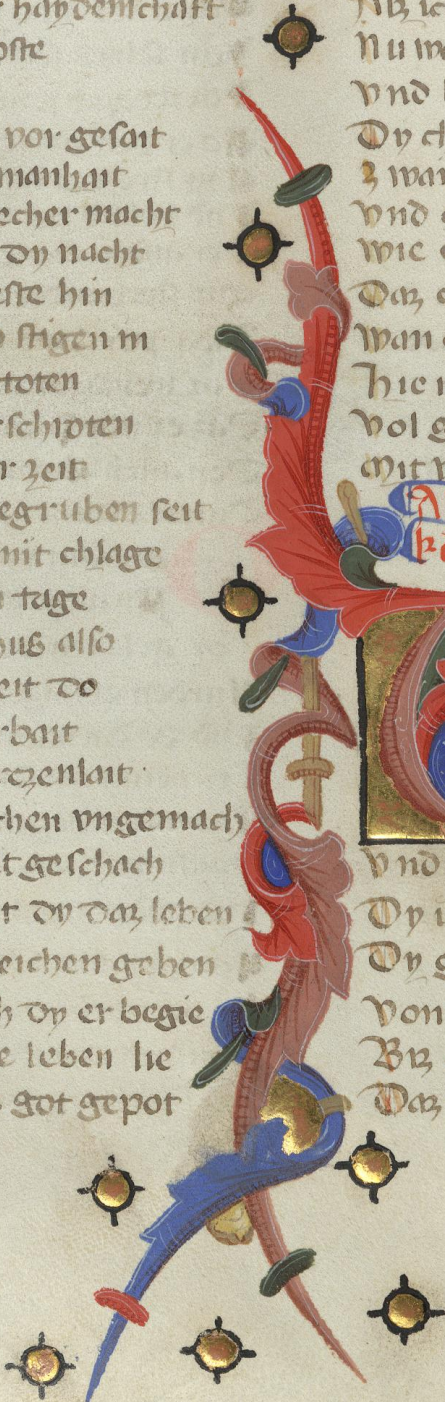 haydenschafft
oste
vor gesait
manhait
echer macht
dy nacht
este hin
stigen in
toten
schripten
r zeit
egruben seit
mit chlage
tage
hus also
eit do
rbait
tzenlait
chen vngemach
t geschach
t dy daz leben
eichen geben
h dy er begie
e leben lie
got gepot
Nu
vnd
Dy
z war
vnd
wie
Daz
wan
hie
vol
Mit
vnd
Dy
Dy
von
Biz
Daz